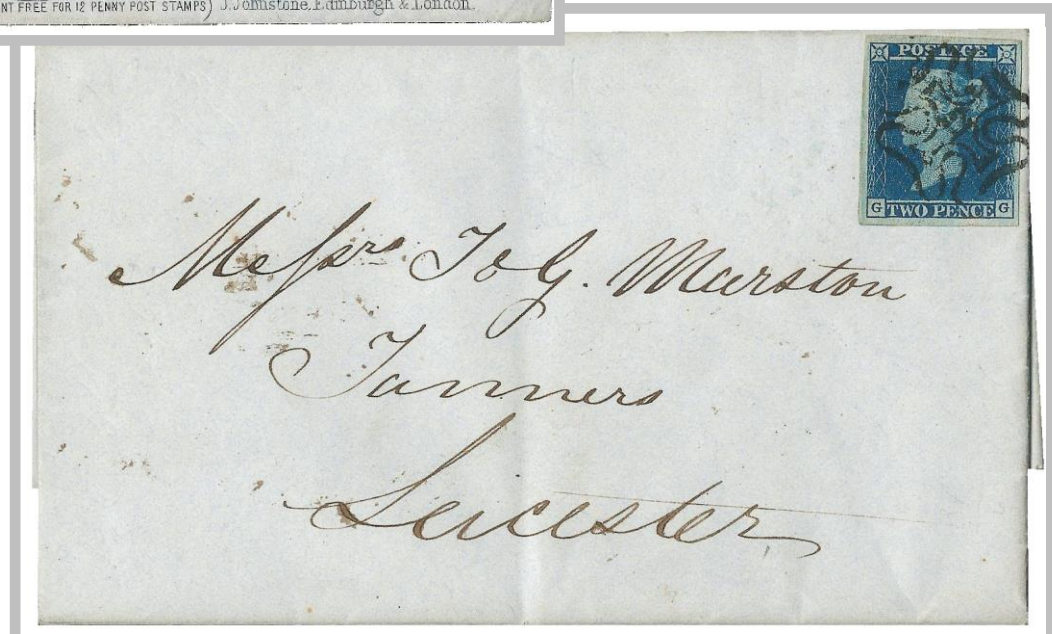 NT FREE FOR 12 PENNY POST STAMPS) J. Johnstone, Edinburgh & London.
POSTAGE
G TWO PENCE G
Messrs T & G. Marston
Tanners
Leicester